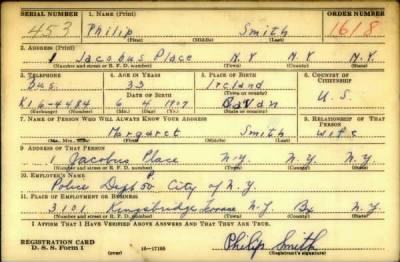 SERIAL NUMBER 1. NAME (Print) ORDER NUMBER
453 Philip Smith 1618
(First) (Middle) (Last)
2. ADDRESS (Print)
1 Jacobus Place N.Y. N.Y. N.Y.
(Number and street or R. F. D. number) (Town) (County) (State)
3. TELEPHONE 4. AGE IN YEARS 5. PLACE OF BIRTH 6. COUNTRY OF CITIZENSHIP
Bus. 33 Ireland
DATE OF BIRTH (Town or county)
KI 6-4484 6 4 1907 Cavan U.S.
(Exchange) (Number) (Mo.) (Day) (Yr.) (State or country)
7. NAME OF PERSON WHO WILL ALWAYS KNOW YOUR ADDRESS 8. RELATIONSHIP OF THAT PERSON
Margaret Smith Wife
(Mr., Mrs., Miss) (First) (Middle) (Last)
9. ADDRESS OF THAT PERSON
1 Jacobus Place N.Y. N.Y. N.Y.
(Number and street or R. F. D. number) (Town) (County) (State)
10. EMPLOYER'S NAME
Police Dept 50 P City of N.Y.
11. PLACE OF EMPLOYMENT OR BUSINESS
3101 Kingsbridge Terrace N.Y. Bx N.Y.
(Number and street or R. F. D. number) (Town) (County) (State)
I AFFIRM THAT I HAVE VERIFIED ABOVE ANSWERS AND THAT THEY ARE TRUE.
REGISTRATION CARD
D. S. S. Form 1 16-17105 Philip Smith
(over) (Registrant's signature)